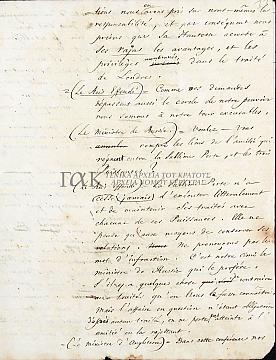 nous avons pris sur nous-mêmes la
responsabilité, et par conséquent nous
prions que la Hautesse accorde à
ses rajas les avantages, et les
privilèges dans le traité
de Londres.
(Le Reis Effendi) — Comme vos demandes
dépassent aussi le cercle de notre pouvoir
nous sommes à notre tour excusables.
(Le Ministre de Russie) — Voulez-vous
rompre les liens de l'amitié qui
regnent entre la Sublime Porte et les trois
ΓΑΚ ΓΕΝΙΚΑ ΑΡΧΕΙΑ ΤΟΥ ΚΡΑΤΟΥΣ
Porte n'a
cessé (jamais) d'exécuter littéralement
et de maintenir les traités avec
chacune de ces Puissances. Elle ne
pense qu'aux moyens de conserver ses
relations. ne prononçons pas le
mot d'infraction. C'est notre ami le
ministre de Russie qui le profère.
S'il y a quelques choses
traités qu'on nous le fasse connaître
Mais l'affaire en question n'étant
d'aucun traité, on ne porte atteinte à l'
amitié en les rejetant.
(Le ministre d'Angleterre) — Dans cette conférence nos